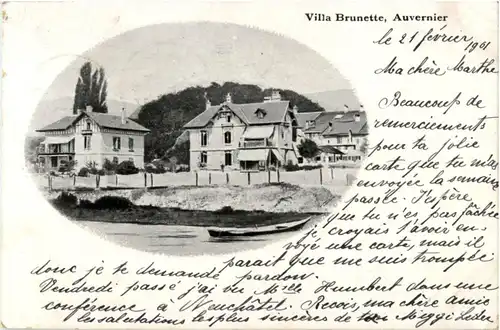 Villa Brunette, Auvernier
le 21 février 1901
Ma chère Marthe
Beaucoup de
remerciements
pour ta jolie
carte que tu mas
envoyée la semaine
passée. J'espère
que tu n'es pas fâchée
je croyais t'avoir en-
voyé une carte, mais il
parait que me suis trompée
donc je te demande pardon.
Vendredi passé j'ai vu Melle Humbert dans une
conférence à Neuchâtel. Reçois, ma chère amie
les salutations les plus sincères de ton Meggi